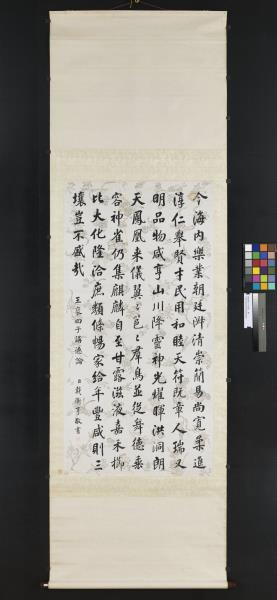 今海內樂業朝廷淑清崇簡易尚寬柔進
淳仁舉賢才民用和睦天符既章人瑞又
明品物咸亨山川降靈神光耀暉洪洞朗
天鳳凰來儀翼〻邕〻羣鳥並從舞德垂
容神雀仍集麒麟自至甘露滋液嘉禾櫛
比大化隆洽庶類條暢家給年豐咸則三
壤豈不盛哉
王褒四子講德論
臣戴衢亨敬書